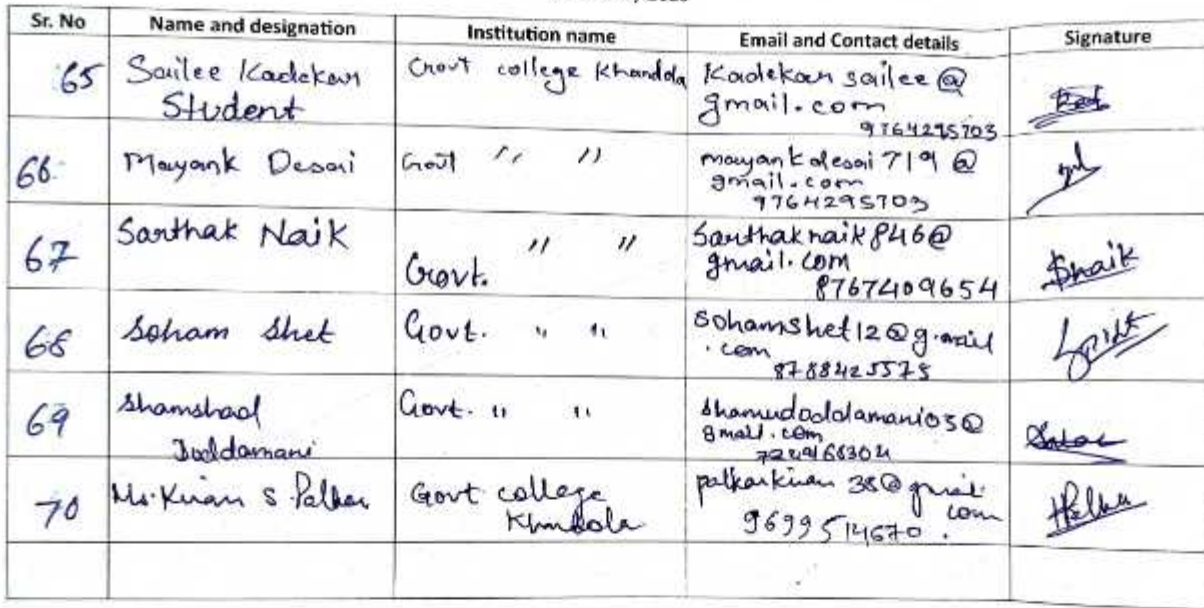 Sr. No Name and designation Institution name Email and Contact details Signature
65 Sailee Kadekar Govt college Khandola Kadekar sailee@
Student gmail.com
9764295703
66. Mayank Desai Govt " " mayankdesai719@
gmail.com
9764295703
67 Sarthak Naik Govt. " " Sarthaknaik846@
gmail.com
8767409654
Snaik
68 Soham Shet Govt. " " Sohamshet12@g.mail
.com
8788425575
69 Shamshad Govt. " " shamudoddamani03@
Doddamani gmail.com
70 Ms. Kiran S Palkar Govt college palkarkiran 38@gmail.
Khandola com
9699514670.